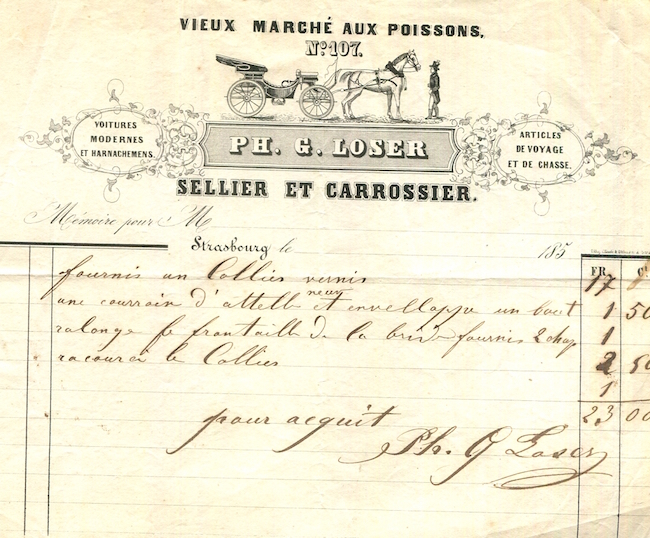 VIEUX MARCHÉ AUX POISSONS,
No. 107.
VOITURES
MODERNES
ET HARNACHEMENS.
PH. G. LOSER
ARTICLES
DE VOYAGE
ET DE CHASSE.
SELLIER ET CARROSSIER.
Mémoire pour M
Strasbourg le 185
FR. C
fournis un Collier vernis 17
une courroie d'attelle neuf et envellappe un bout 1 50
ralonge le frontaille de la bride fournis 2 chap 1
racourci le Collier 2 50
1
23 00
pour acquit
Ph. G Loser